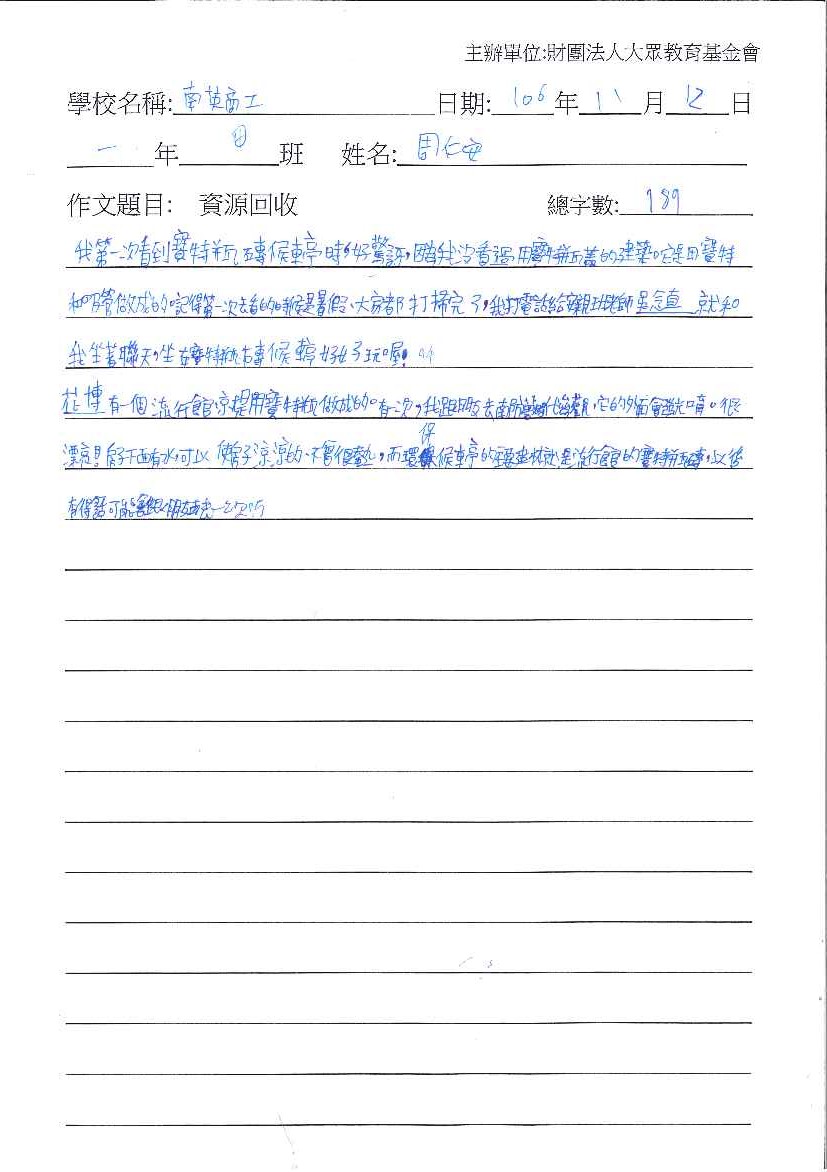 主辦單位:財團法人大眾教育基金會
學校名稱: 南英商工 日期: 106 年 11 月 12 日
一 年 班 姓名: 周仁安
作文題目: 資源回收 總字數: 189
我第一次看到寶特瓶磚候車亭時,好驚訝,因為我沒看過用寶特瓶蓋的建築。它是用寶特
和吸管做成的。記得第一次去看的時候是暑假、大家都打掃完了,我打電話給 就和
我坐著聊天,坐在寶特瓶磚候車亭好好玩喔!
花博有一個流行館,是用寶特瓶做成的。有一次,我跟 去 參觀,它的外面會 唷。很
漂亮!房子下面有水,可以使房子涼涼的、不會很熱,而環保候車亭的 是流行館的寶特瓶磚,以後
有 話可能會跟朋友